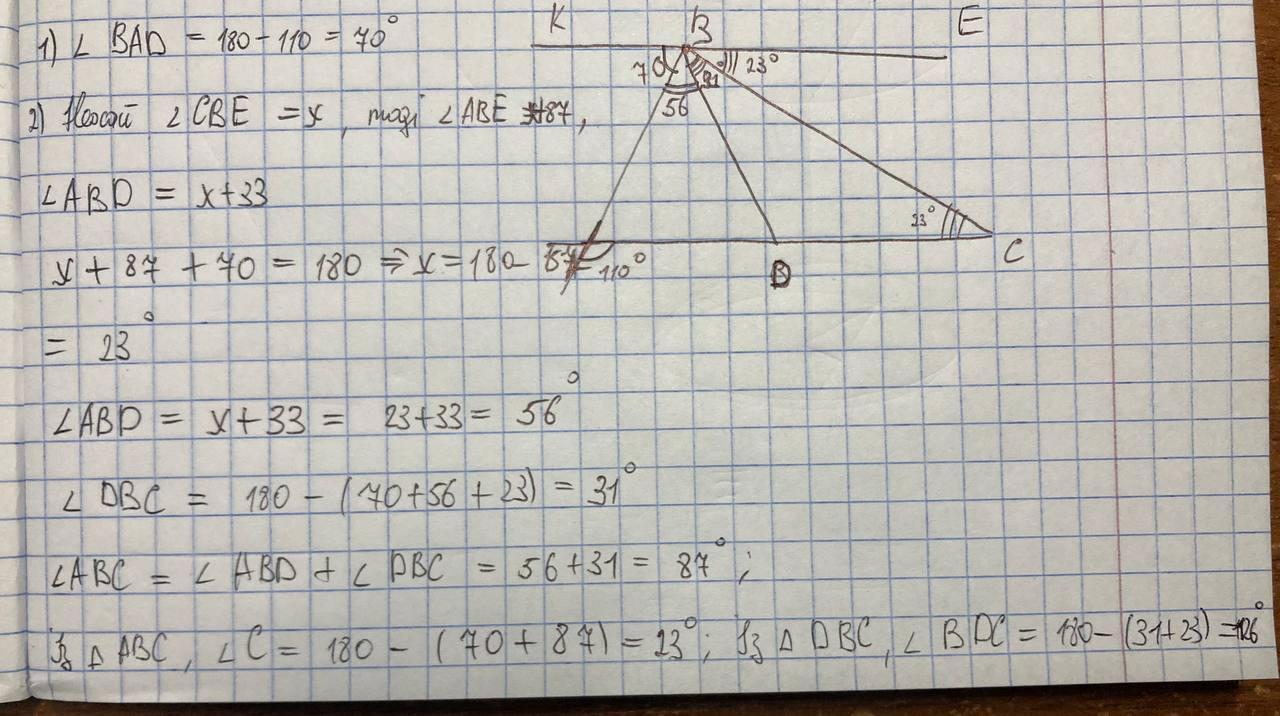 1) ∠ BAD = 180 - 110 = 70°
2) Нехай ∠ CBE = x, тоді ∠ ABE = x+87,
∠ABD = x+33
x + 87 + 70 = 180 ⇒ x = 180 - 157 =
= 23°
∠ABD = x+33 = 23+33 = 56°
∠ DBC = 180 - (70+56+23) = 31°
∠ABC = ∠ ABD + ∠ DBC = 56+31 = 87°;
Із △ ABC, ∠C = 180 - (70+87) = 23°; Із △ DBC, ∠ BDC = 180 - (31+23) = 126°
K B E
70 56 31 23°
23°
110° D C